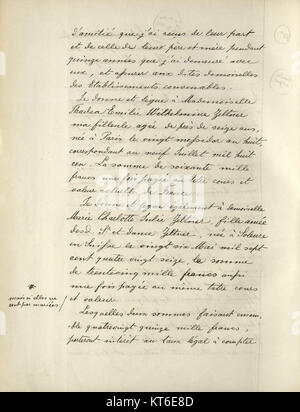 d'amitié que j'ai reçus de leur part
et de celle de leur père et mère pendant
quinze années que j'ai demeuré avec
eux, et assurer aux dites demoiselles
des Etablissements convenables.
Je donne et lègue à Mademoiselle
Thadea Emilie Wilhelmine Zeltner
ma filleule agée de près de seize ans
née à Paris le vingt messidor an huit,
correspondant au neuf Juillet mil huit
cent. La somme de soixante mille
francs une fois payée au titre cours et
valeur actuelle de France
Je donne et lègue également à demoiselle
Marie Charlotte Julie Zeltner, fille ainée
desd. Sr. et dame Zeltner, née à Soleure
en Suisse le vingt six Mai mil sept
cent quatre vingt seize, la somme
de trente cinq mille francs aussi
une fois payée au même titre cours
et valeur
mais si elles ne
sont pas mariées
Lesquelles deux sommes faisant ensem-
ble quatre vingt quinze mille francs,
porteront intérêt au taux légal à compter
alamy
Image ID: KT6E8D
www.alamy.com